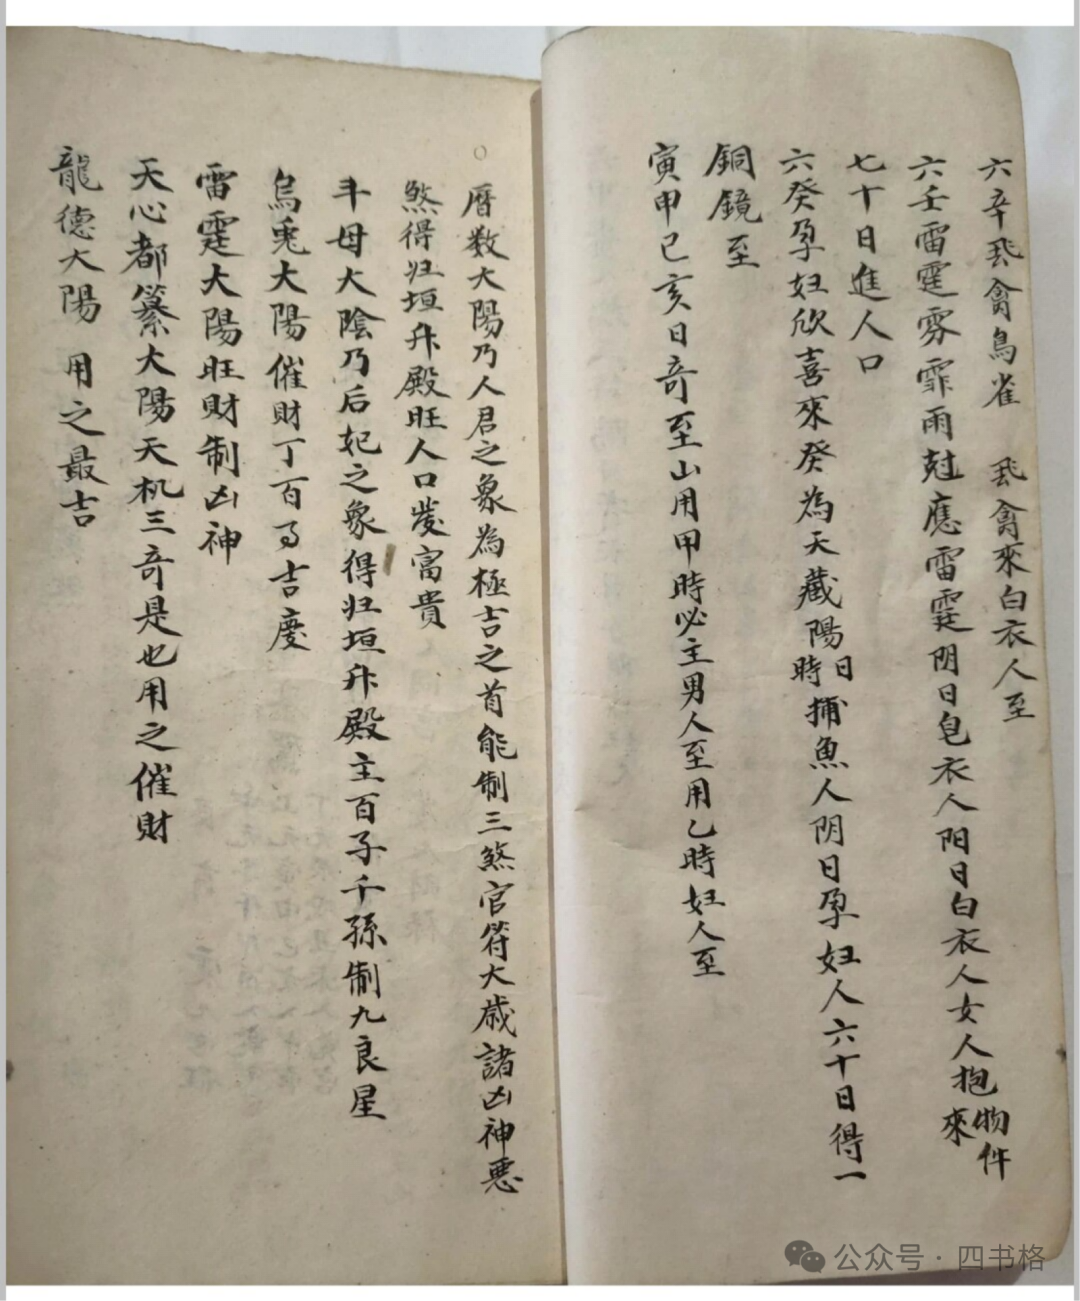 六辛飛禽鳥雀 飛禽來白衣人至
六壬雷霆雾霏雨尅應雷霆阴日皂衣人阳日白衣人女人抱物件來
七十日進人口
六癸孕妇欣喜來癸為天藏陽日時捕魚人阴日孕妇人六十日得一
銅鏡至
寅甲已亥日奇至山用甲時必主男人至用乙時妇人至
曆数大陽乃人君之象為極吉之首能制三煞官符大歲諸凶神悪
煞得归垣升殿旺人口发富貴
斗母大陰乃后妃之象得归垣升殿主百子千孫制九良星
烏兎大陽催財丁百事吉慶
雷霆大陽旺財制凶神
天心都纂大陽天机三奇是也用之催財
龍德大陽 用之最吉
公众号·四书格